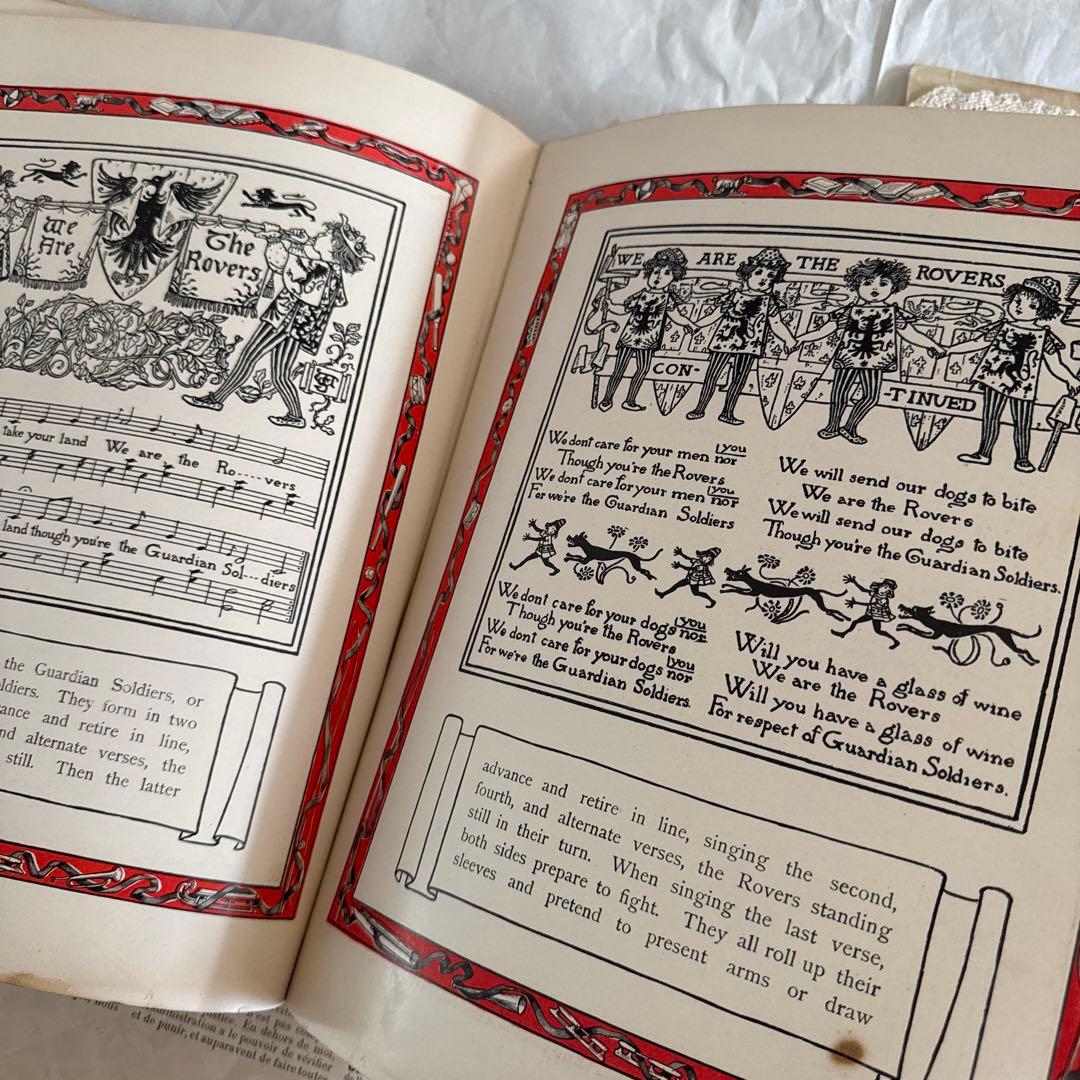 We
Are
The
Rovers
take your land We are the Ro....vers
land though you're the Guardian Sol---diers
the Guardian Soldiers, or
ldiers. They form in two
ance and retire in line,
nd alternate verses, the
still. Then the latter
WE ARE THE ROVERS
CON- -TINUED
We dont care for your men nor you
Though you're the Rovers
We dont care for your men nor you
For we're the Guardian Soldiers
We will send our dogs to bite
We are the Rovers
We will send our dogs to bite
Though you're the Guardian Soldiers.
We dont care for your dogs nor you
Though you're the Rovers
We dont care for your dogs nor you
For we're the Guardian Soldiers.
Will you have a glass of wine
We are the Rovers
Will you have a glass of wine
For respect of Guardian Soldiers.
advance and retire in line, singing the second,
fourth, and alternate verses, the Rovers standing
still in their turn. When singing the last verse,
both sides prepare to fight. They all roll up their
sleeves and pretend to present arms or draw
nous
est pas
ministration a le pouvoir de vérifier
et de punir, et auparavent de faire toutes
tice. En dehors de moi,